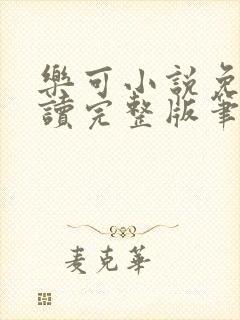 樂可小說免
讀完整版筆
麦克華